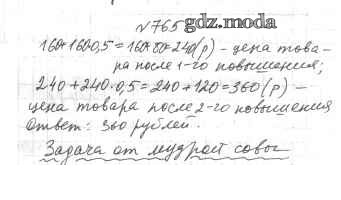 №765 gdz.moda
160+160·0,5=160+80=240(р) - цена това-
ра после 1-го повышения;
240+240·0,5=240+120=360(р) -
цена товара после 2-го повышения
Ответ: 360 рублей.
Задача от мудрост совы